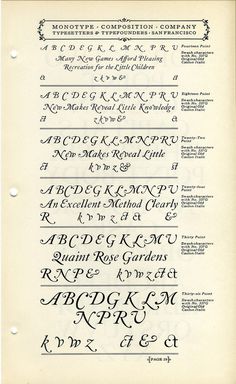 MONOTYPE · COMPOSITION · COMPANY
TYPESETTERS & TYPEFOUNDERS · SAN FRANCISCO
A B C D E G K L M N P R U
Many New Games Afford Pleasing
Recreation for the Little Children
Fourteen Point
Swash characters
with No. 337G
Original Old
Caslon Italic
A B C D E G K L M N P R U
New Makes Reveal Little Knowledge
Eighteen Point
Swash characters
with No. 337G
Original Old
Caslon Italic
A B C D E G K L M N P R U
New Makes Reveal Little
Twenty-Two
Point
Swash characters
with No. 337G
Original Old
Caslon Italic
A B C D E G K L M N P U
An Excellent Method Clearly
R k v w z ct & st
Twenty-four
Point
Swash characters
with No. 337G
Original Old
Caslon Italic
A B C D E G K L M U
Quaint Rose Gardens
R N P & k v w z ct st
Thirty Point
Swash characters
with No. 337G
Original Old
Caslon Italic
A B C D G K L M
N P R U
k v w z ct & st
Thirty-six Point
Swash characters
with No. 337G
Original Old
Caslon Italic
PAGE 29